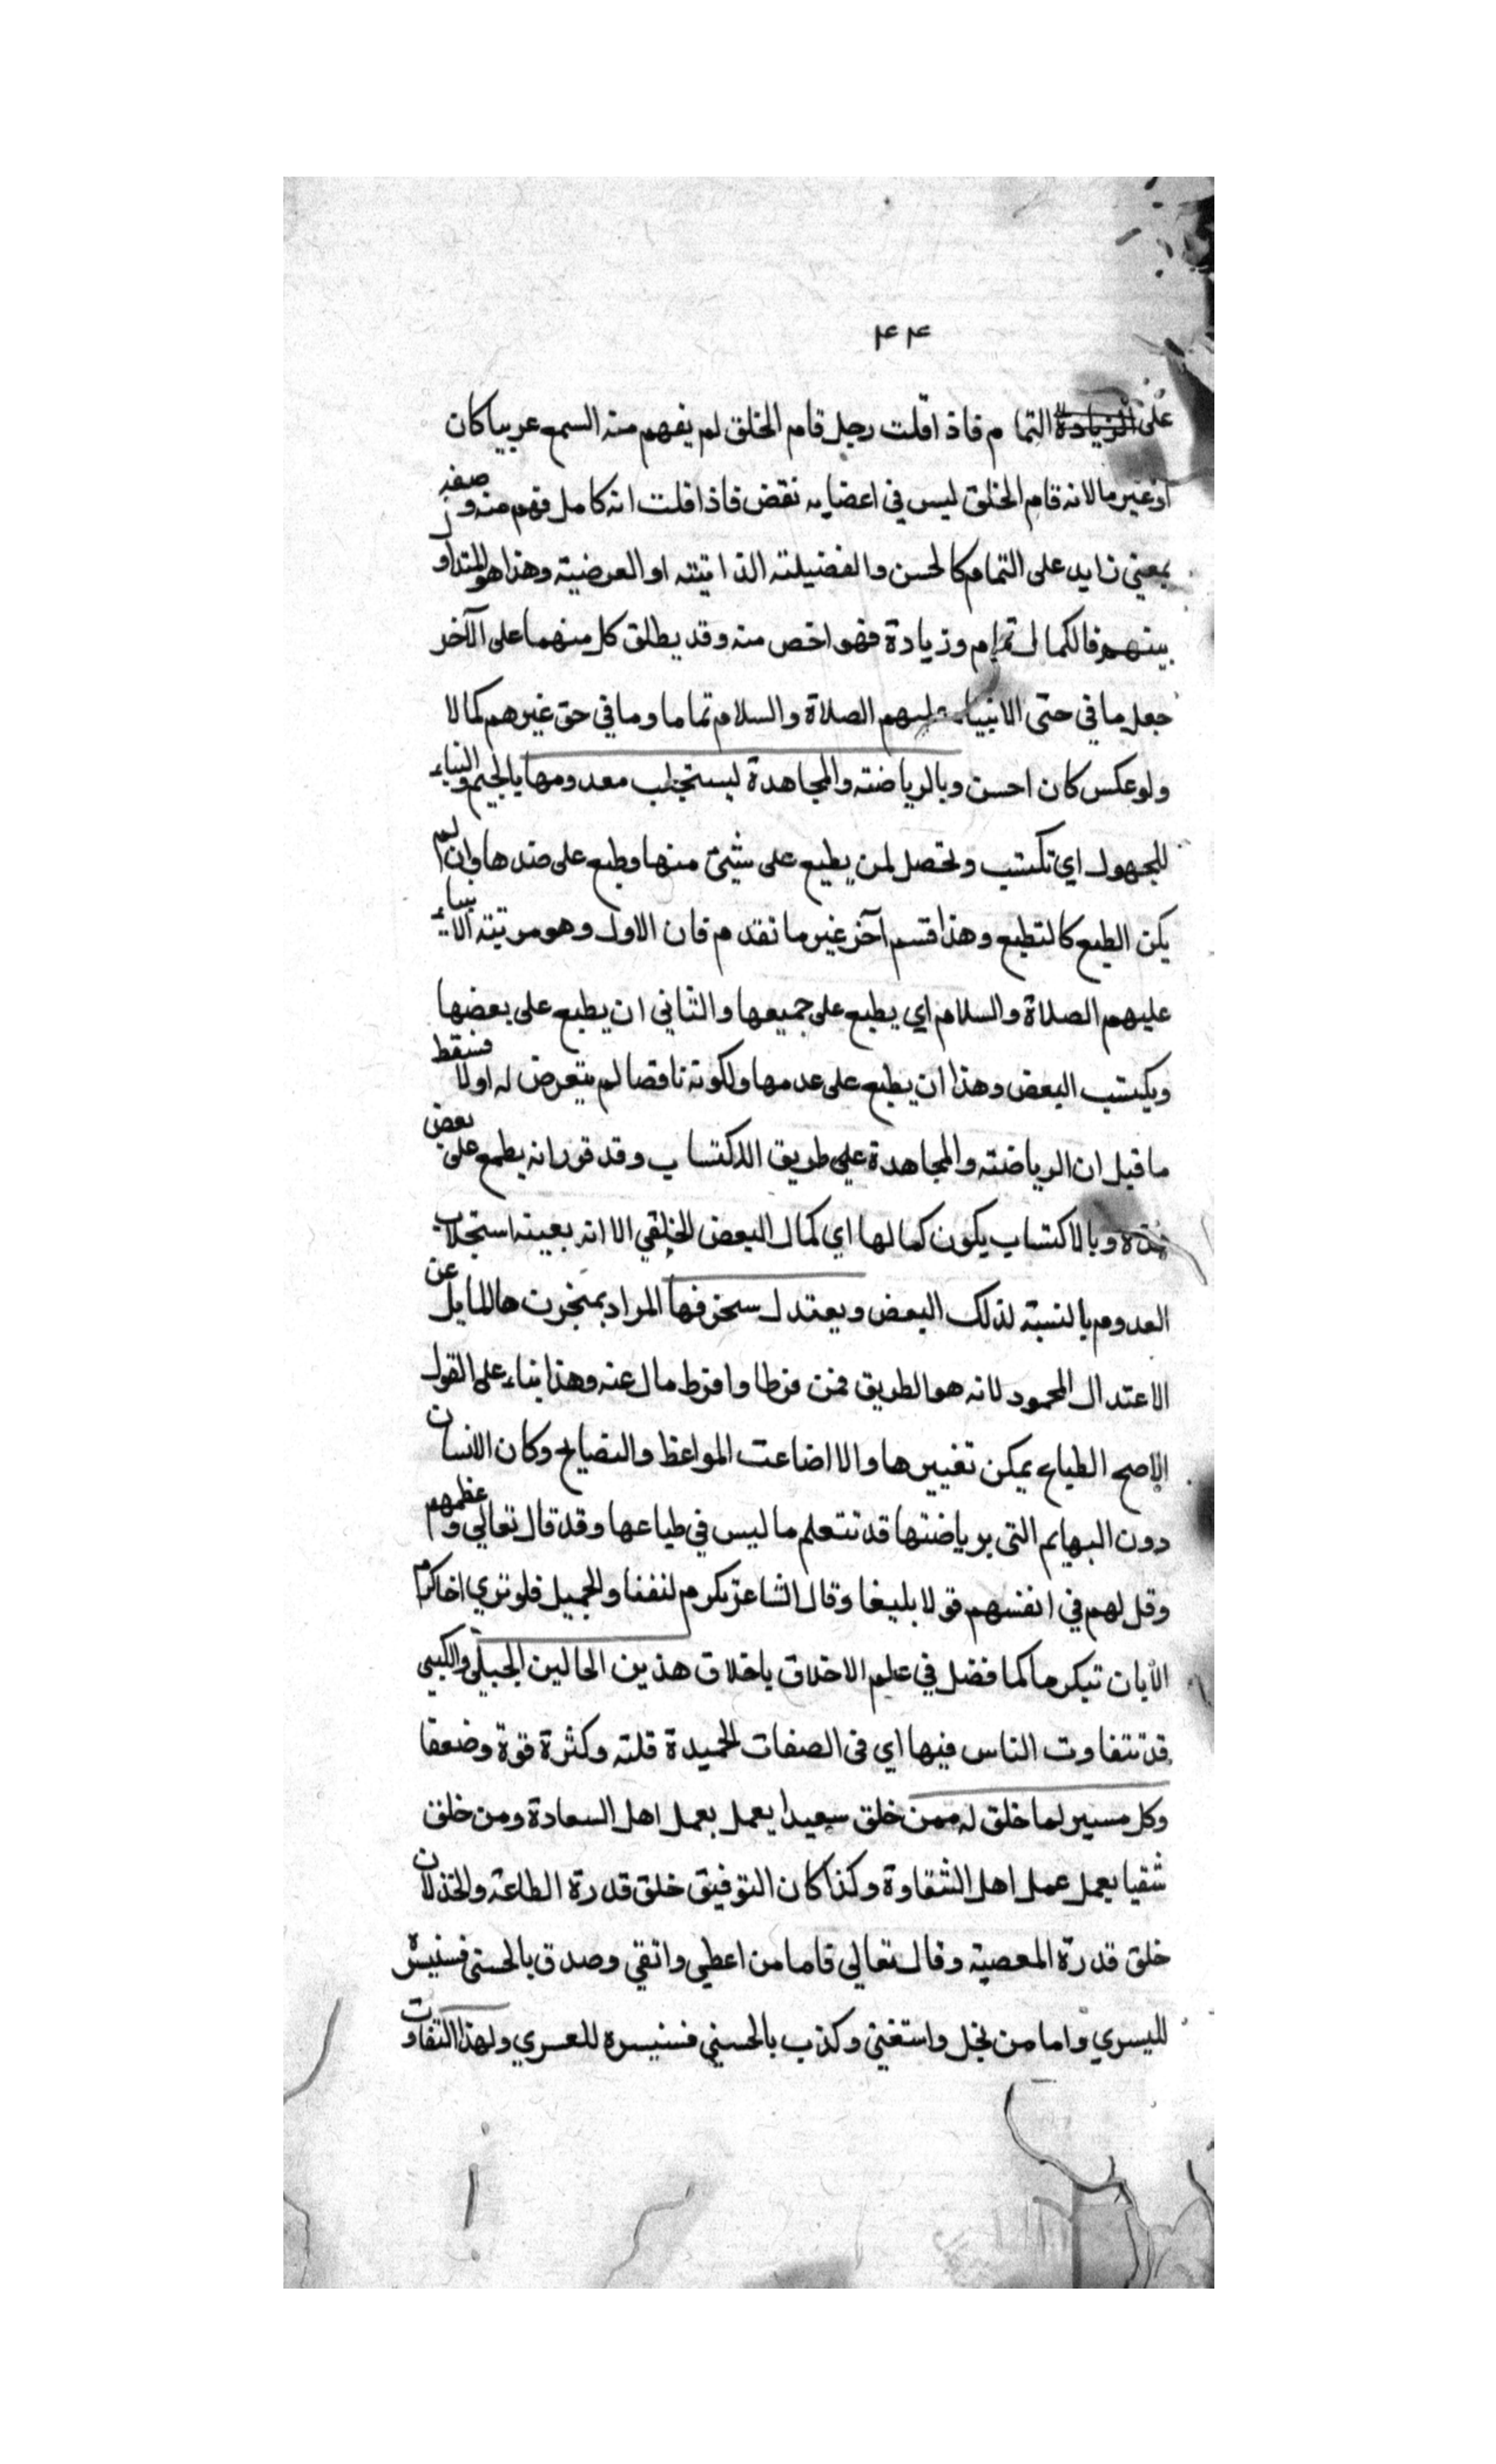 ۴۴
على الزيادة التمام فاذ اقلت رجل قام الخلق لم يفهم منه السمع عربيا كان
او غير ما لانه قام الخلق ليس في اعضايه نقض فاذا قلت انه كامل فهم منه وصفه
بمعني زايد على التمام كالحسن والفضيلته الذاتيته او العرضيته وهذا هو المتداو
بينهم فالكمال تمام وزيادة فهو اخص منه وقد يطلق كل منهما على الآخر
جعل ما في حتى الانبياء عليهم الصلاة والسلام تماما وما في حق غيرهم كمالا
ولو عكس كان احسن وبالرياضته والمجاهدة ليستجلب معدومها بالجيم والبناء
للمجهول اي تكتسب وتحصل لمن يطبع على شيئ منها وطبع على ضدها وان لم
يكن الطبع كالتطبع وهذا قسم آخر غير ما تقدم فان الاول وهو مرتبته الانبياء
عليهم الصلاة والسلام اي يطبع على جميعها والثاني ان يطبع على بعضها
ويكتسب البعض وهذا ان يطبع على عدمها ولكونه ناقصا لم يتعرض له اولا فسقط
ما قيل ان الرياضته والمجاهدة على طريق الاكتساب وقد قرر انه يطبع على بعض
هذه وبالاكتساب يكون كمالها اي كمال البعض الخلقي الا انه بعينه استجلاب
العدوم بالنسبة لذلك البعض ويعتدل سخرفها المراد بمنخرت ها المايل عن
الاعتدال المحمود لانه هو الطريق فمن فرطا وافرط مال عنه وهذا بناء على القول
الاصح الطباع يمكن تغييرها والا اضاعت المواعظ والنصايح وكان الانسان
دون البهايم التى برياضتها قد تتعلم ما ليس في طباعها وقد قال تعالي وعظهم
وقل لهم في انفسهم قولا بليغا وقال الشاعر تكرم لنفنا والجميل فلو تري اخاكرم
الايان تيكرما كما فضل في علم الاخلاق باخلاق هذين الحالين الجبلي والكسبي
قد تتفاوت الناس فيها اي في الصفات الحميدة قلته وكثرة قوة وضعفا
وكل مسير لما خلق له ممن خلق سعيدا يعمل بعمل اهل السعادة ومن خلق
شقيا يعمل عمل اهل الشقاوة وكذا كان التوفيق خلق قدرة الطاعة والخذلان
خلق قدرة المعصيته وقال تعالي فاما من اعطي واتقي وصدق بالحسنى فسنيسره
لليسري واما من بخل واستغني وكذب بالحسني فسنيسره للعسري ولهذا التفاوت